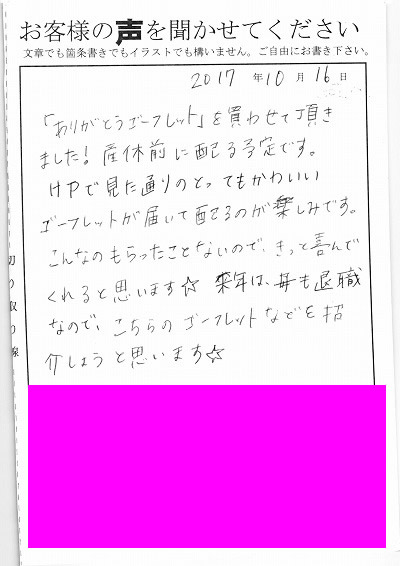 お客様の声を聞かせてください
文章でも箇条書きでもイラストでも構いません。ご自由にお書き下さい。
2017年10月16日
「ありがとうゴーフレット」を買わせて頂き
ました！産休前に配る予定です。
HPで見た通りのとってもかわいい
ゴーフレットが届いて配るのが楽しみです。
こんなのもらったことないので、きっと喜んで
くれると思います☆ 来年は、母も退職
なので、こちらのゴーフレットなどを招
介しようと思います☆
切り取り線